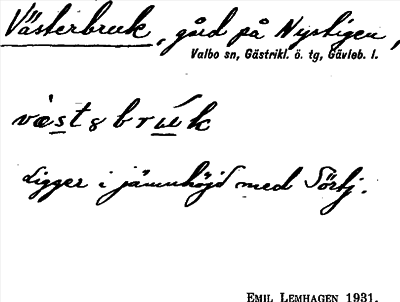 Västerbruk, gård på Nystigen,
Valbo sn, Gästrikl. ö. tg, Gävleb. l.
Ligger i jämnhöjd med Sörtj.
EMIL LEMHAGEN 1931.